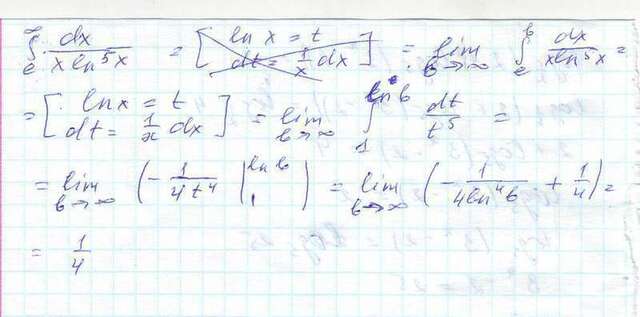 ∫_e^∞ dx/(x ln^5 x) = [ln x = t, dt = 1/x dx] = lim_{b→∞} ∫_e^b dx/(x ln^5 x) =
= [ln x = t, dt = 1/x dx] = lim_{b→∞} ∫_1^{ln b} dt/t^5 =
= lim_{b→∞} (-1/(4t^4) |_1^{ln b}) = lim_{b→∞} (-1/(4 ln^4 b) + 1/4) =
= 1/4